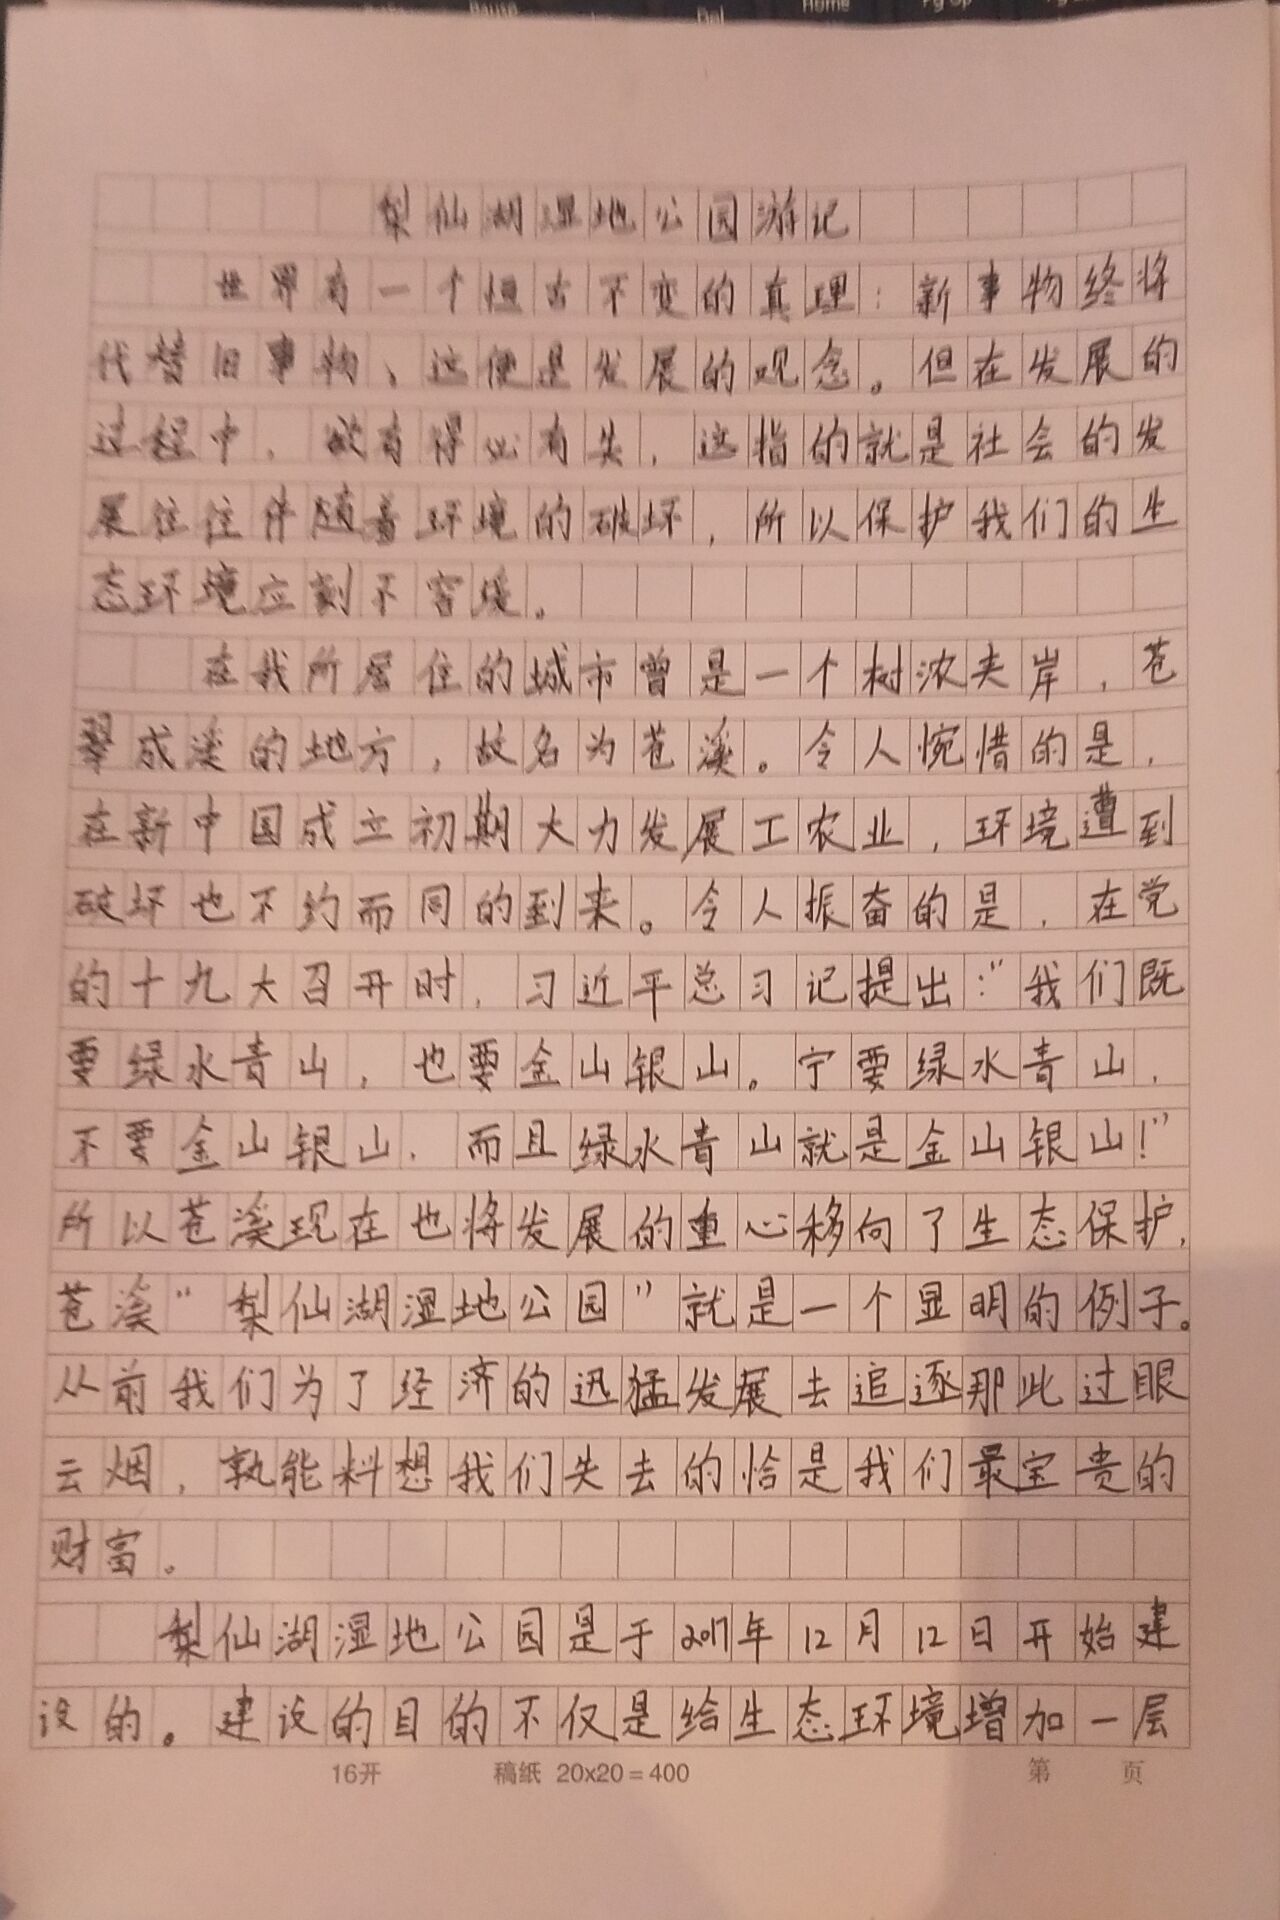 Pause
Del
Home
Pg Up
梨仙湖湿地公园游记
世界有一个恒古不变的真理：新事物终将
代替旧事物、这便是发展的观念。但在发展的
过程中，故有得必有失，这指的就是社会的发
展往往伴随着环境的破坏，所以保护我们的生
态环境应刻不容缓。
在我所居住的城市曾是一个树浓夹岸，苍
翠成溪的地方，故名为苍溪。令人惋惜的是，
在新中国成立初期大力发展工农业，环境遭到
破坏也不约而同的到来。令人振奋的是，在党
的十九大召开时，习近平总习记提出：“我们既
要绿水青山，也要金山银山。宁要绿水青山，
不要金山银山，而且绿水青山就是金山银山！”
所以苍溪现在也将发展的重心移向了生态保护，
苍溪“梨仙湖湿地公园”就是一个显明的例子。
从前我们为了经济的迅猛发展去追逐那此过眼
云烟，孰能料想我们失去的恰是我们最宝贵的
财富。
梨仙湖湿地公园是于2017年12月12日开始建
设的。建设的目的不仅是给生态环境增加一层
16开 稿纸 20x20=400 第 页